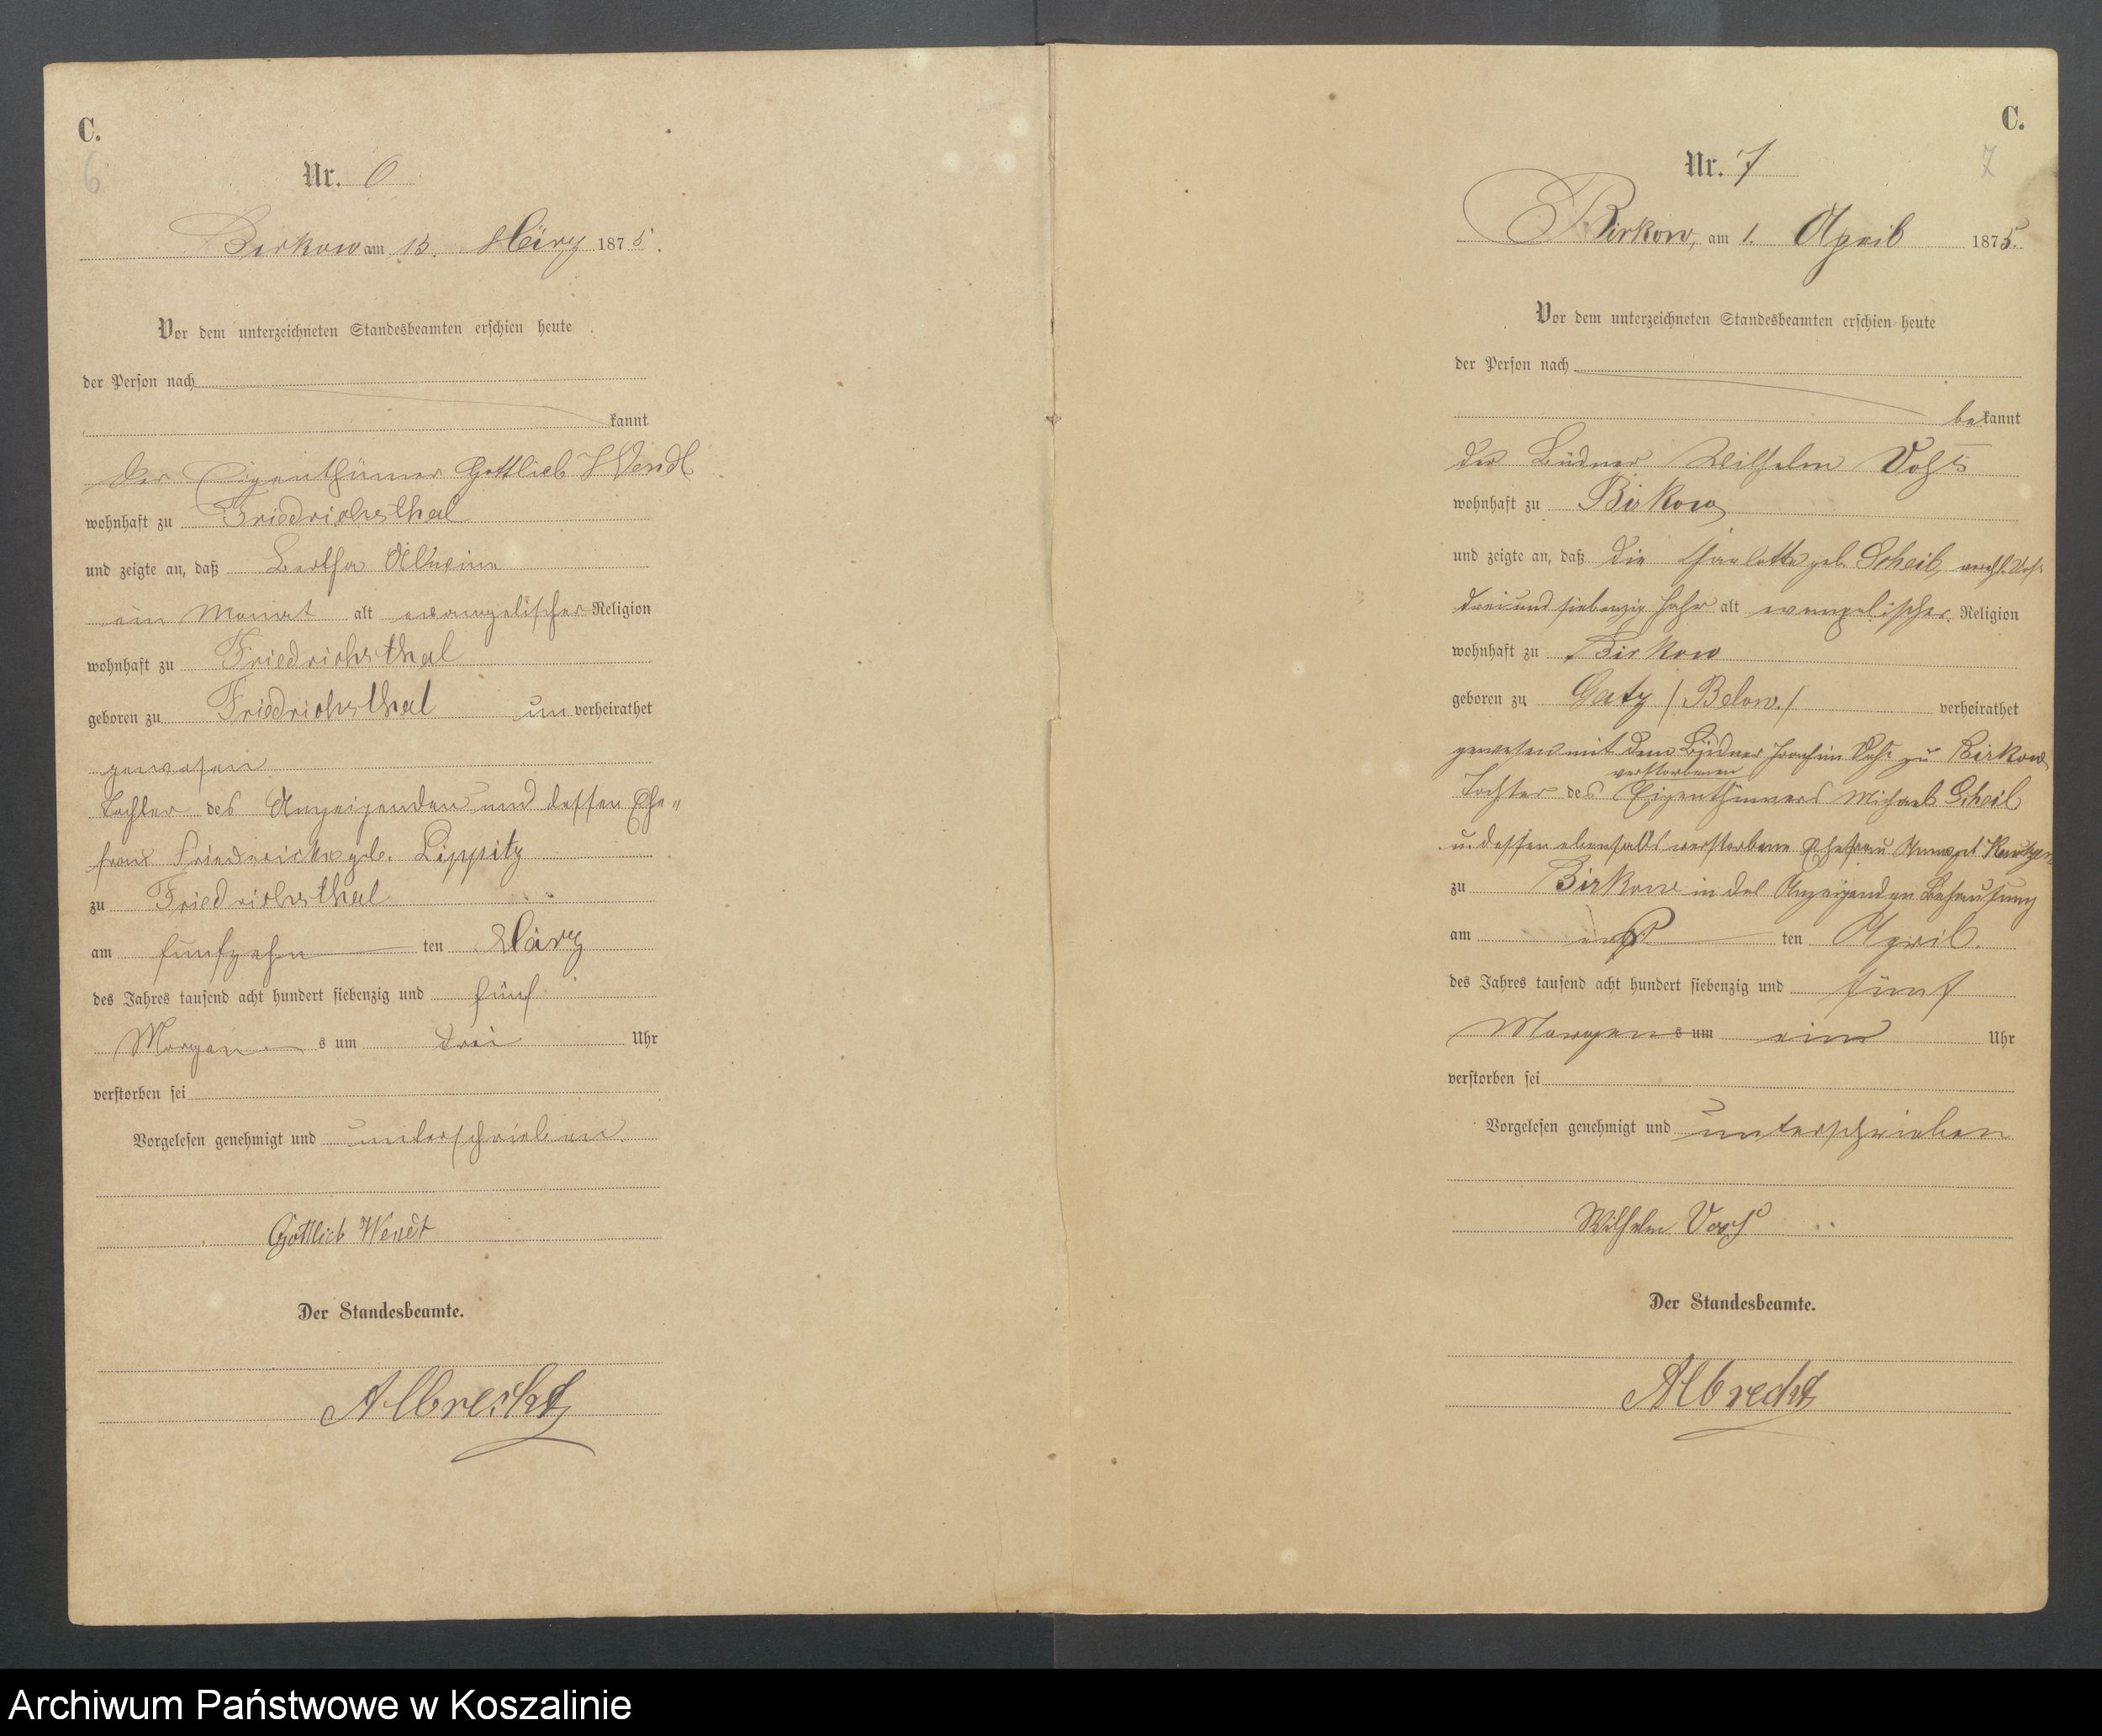 C.
6
Nr. 6
Birkow am 15. März 1875.
Vor dem unterzeichneten Standesbeamten erschien heute
der Person nach
kannt
der Eigenthümer Gottlieb Wendt
wohnhaft zu Friedrichsthal
und zeigte an, daß Bertha Alwine
ein Monat alt evangelischer Religion
wohnhaft zu Friedrichsthal
geboren zu Friedrichsthal un verheirathet
gewesen
Tochter des Anzeigenden und dessen Ehe„
frau Friedericke geb. Lippitz
zu Friedrichsthal
am fünfzehn ten März
des Jahres tausend acht hundert siebenzig und fünf
Morgen s um drei Uhr
verstorben sei
Vorgelesen genehmigt und unterschrieben
Gottlieb Wendt
Der Standesbeamte.
Albrecht
C.
7
Nr. 7
Birkow, am 1. April 1875.
Vor dem unterzeichneten Standesbeamten erschien heute
der Person nach
bekannt
der Büdner Wilhelm Vohs
wohnhaft zu Birkow
und zeigte an, daß die Charlotte geb. Scheil,
dreiund siebenzig Jahr alt evangelischer Religion
wohnhaft zu Birkow
geboren zu Gatz / Below. / verheirathet
gewesen mit dem Büdner Joachim Vohs zu Birkow
verstorbenen
Tochter des Eigenthümers Michael Scheil
u. dessen ebenfalls verstorbene Ehefrau
zu Birkow in des Anzeigenden Behausung
am ersten April.
des Jahres tausend acht hundert siebenzig und fünf
Morgens um ein Uhr
verstorben sei
Vorgelesen genehmigt und unterschrieben
Wilhelm
Der Standesbeamte.
Albrecht
Archiwum Państwowe w Koszalinie